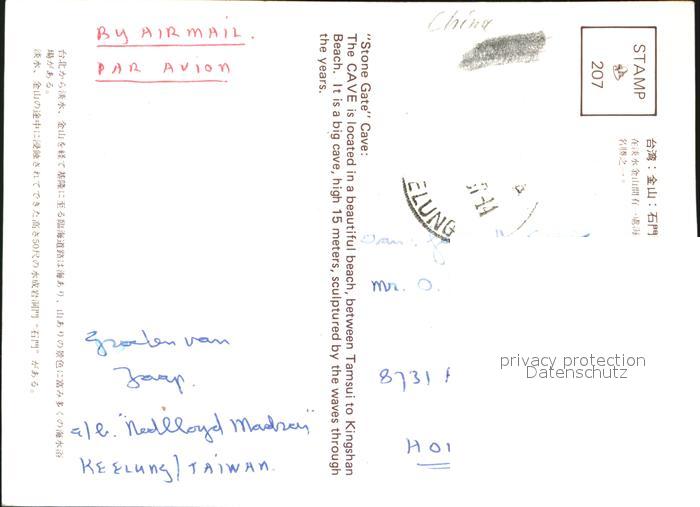 BY AIRMAIL.
PAR AVION
China
STAMP
207
台湾：金山：石門
名勝之一。
"Stone Gate" Cave:
The CAVE is located in a beautiful beach, between Tamsui to Kingshan
Beach. It is a big cave, high 15 meters, sculptured by the waves through
the years.
台北から淡水、金山を経て基隆に至る臨海道路は海あり、山ありの景色に富み多くの海水浴
場がある。
淡水、金山の途中に浸蝕されてできた高さ50尺の水成岩洞門"石門"がある。
ELUNG
Mr. O.
8731
HOI
Groeten van
Jaap.
a/b. "Nedlloyd Madras"
KEELUNG/TAIWAN.
privacy protection
Datenschutz